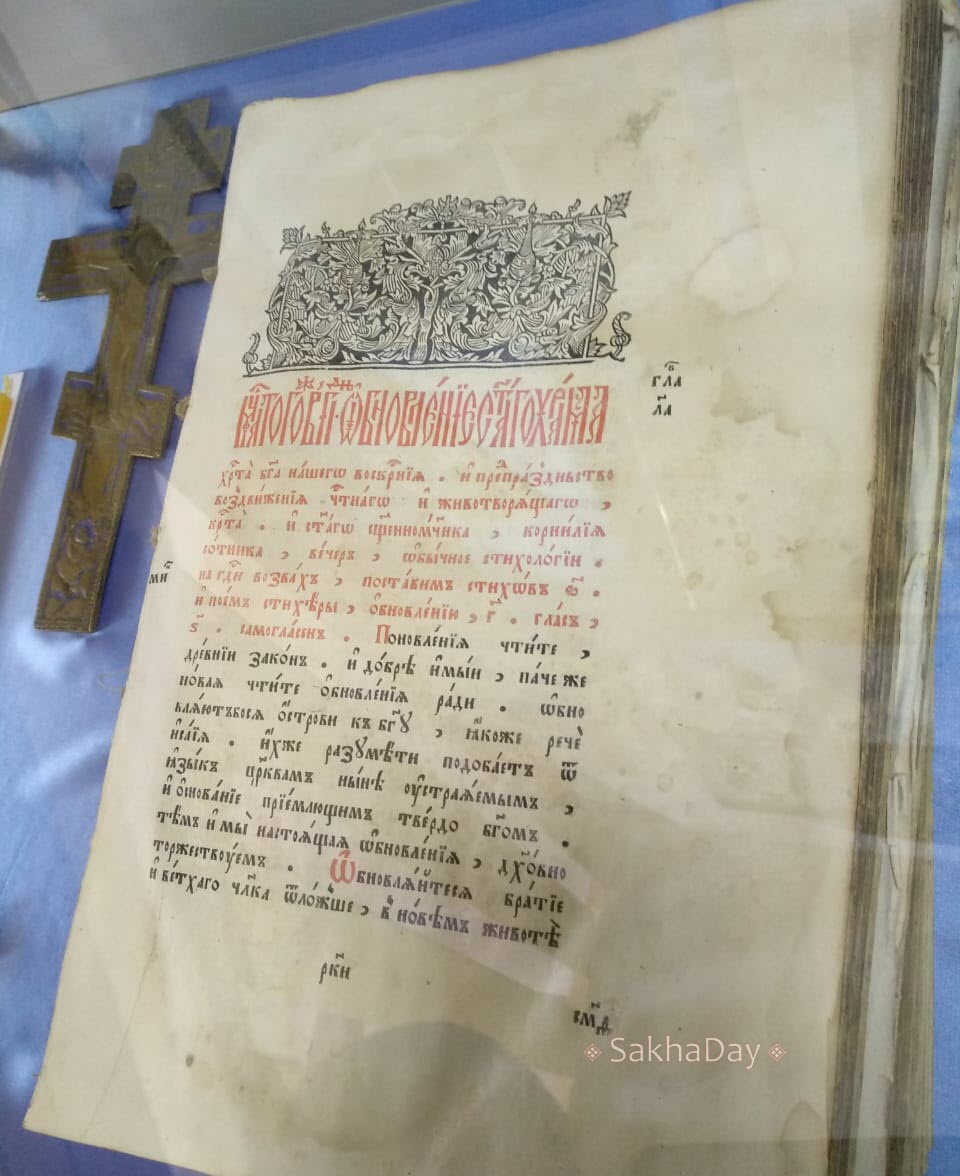 того́же в҃і ѡ҆бновле́нїе ст҃а́гѡ хра́ма
хрⷭ҇та̀ бг҃а на́шегѡ воскрⷭ҇нїѧ . и҆ препра́здньство
воздви́женїѧ чⷭ҇тна́гѡ и҆ животворѧ́щагѡ ,
крⷭ҇та̀ . и҆ ст҃а́гѡ сщ҃енномч҃ника , корни́лїѧ
со́тника , ве́черъ , ѡ҆бы́чное стихоло́гїи .
на гдⷭ҇и воззва́хъ , поста́вимъ стихѡ́въ
и҆ пое́мъ стихѣ́ры , ѻ҆бновле́нїю , г҃ . гла́съ ,
ѕ҃ . самогла́сенъ . Поновле́нїѧ чти́те ,
дре́внїи зако́нъ . и҆ до́брѣ и҆мы́и , па́че же
но́ваѧ чти́те ѻ҆бновле́нїѧ ра́ди . ѡ҆бно
влѧ́ютъбосѧ ѻ҆́строви къ бг҃ꙋ , ꙗ҆́коже речѐ
и҆са́їѧ . и҆́хже разꙋмѣ́ти подоба́етъ ѿ
ꙗ҆зы́къ цр҃квамъ ны́нѣ оу҆страѧ́емымъ ,
и҆ ѻ҆снова́нїе прїе́млющимъ тве́рдо бг҃омъ .
тѣ́мъ и҆ мы̀ настоѧ́щаѧ ѡ҆бновле́нїѧ , дх҃о́вно
торжествꙋ́емъ . Ѡ҆бновлѧ́йтесѧ бра́тїе
и҆ ве́тхаго чл҃ка ѿло́жьше , в но́вѣмъ животѣ̀
рк҃и
гла в
л҃а
SakhaDay